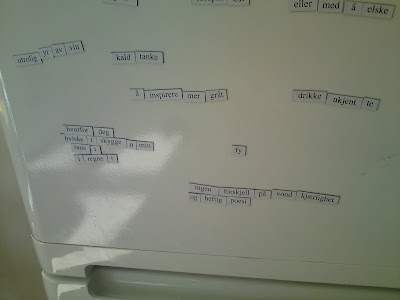 eller med å elske
utrolig yr av vin
kald tanke
å inspirere mer gråt
drikke ukjent te
hvorfor deg
hviske i skygge n min
taus i
i regne t
ty
ingen forskjell på vond kjærlighet
og heftig poesi